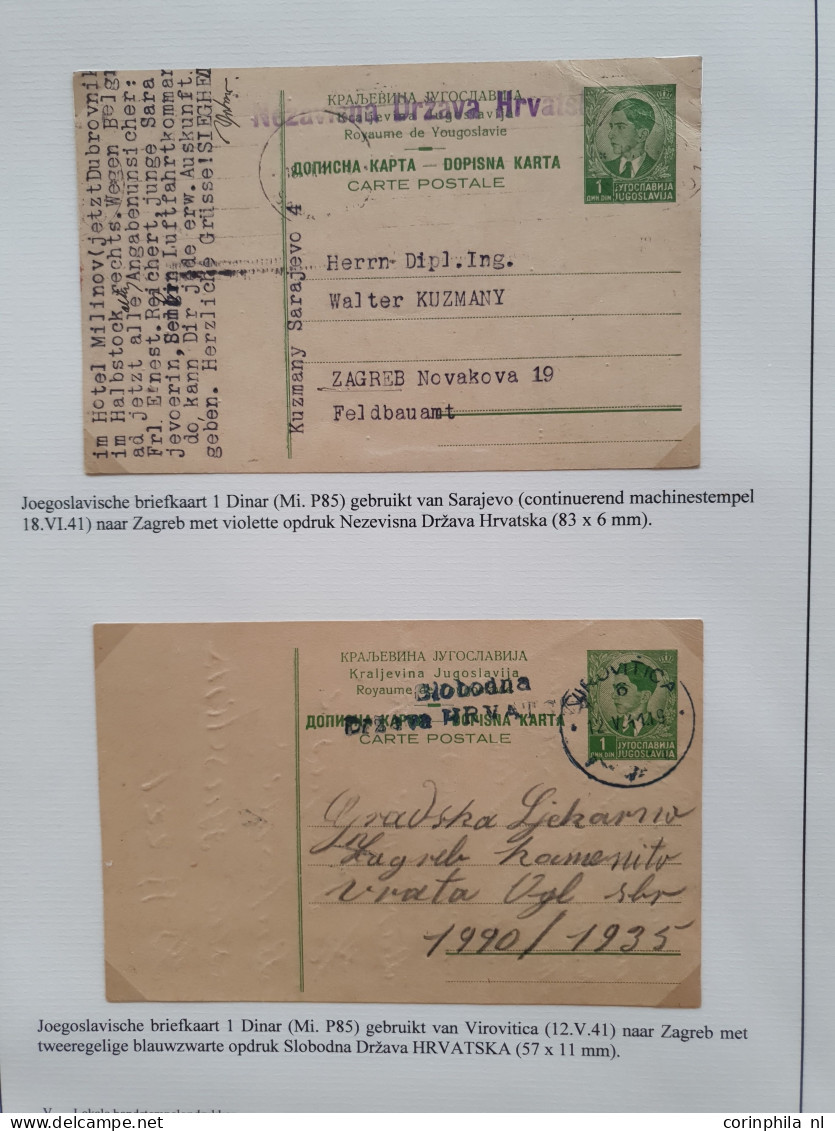 im Hotel Milinov(jetztDubrovnik
im Halbstock rechts.Wegen Belgr
ad jetzt alle Angabenunsicher:
Frl Ernest.Reichert,junge Sara
jevoerin, Luftfahrtkommar
do, kann Dir jede erw.Auskunft
geben. Herzliche Grüsse!SIEGHEI
Kuzmany Sarajevo 4
КРАЉЕВИНА ЈУГОСЛАВИЈА
Nezavisna Država Hrvatsk
Kraljevina Jugoslavija
Royaume de Yougoslavie
ДОПИСНА КАРТА — DOPISNA KARTA
CARTE POSTALE
1
ДИН DIN
ЈУГОСЛАВИЈА
JUGOSLAVIJA
Herrn Dipl.Ing.
Walter KUZMANY
ZAGREB Novakova 19
Feldbauamt
Joegoslavische briefkaart 1 Dinar (Mi. P85) gebruikt van Sarajevo (continuerend machinestempel
18.VI.41) naar Zagreb met violette opdruk Nezevisna Država Hrvatska (83 x 6 mm).
КРАЉЕВИНА ЈУГОСЛАВИЈА
Kraljevina Jugoslavija
Royaume de
Slobodna
ДОПИСНА КАРТА — DOPISNA KARTA
Država HRVAT
CARTE POSTALE
VIROVITICA
6
12.V.41
1
ДИН DIN
ЈУГОСЛАВИЈА
JUGOSLAVIJA
Gradska Ljekarno
Zagreb Kamenito
vrata Ogl sbr
1990/1935
Joegoslavische briefkaart 1 Dinar (Mi. P85) gebruikt van Virovitica (12.V.41) naar Zagreb met
tweeregelige blauwzwarte opdruk Slobodna Država HRVATSKA (57 x 11 mm).
corinphila nl